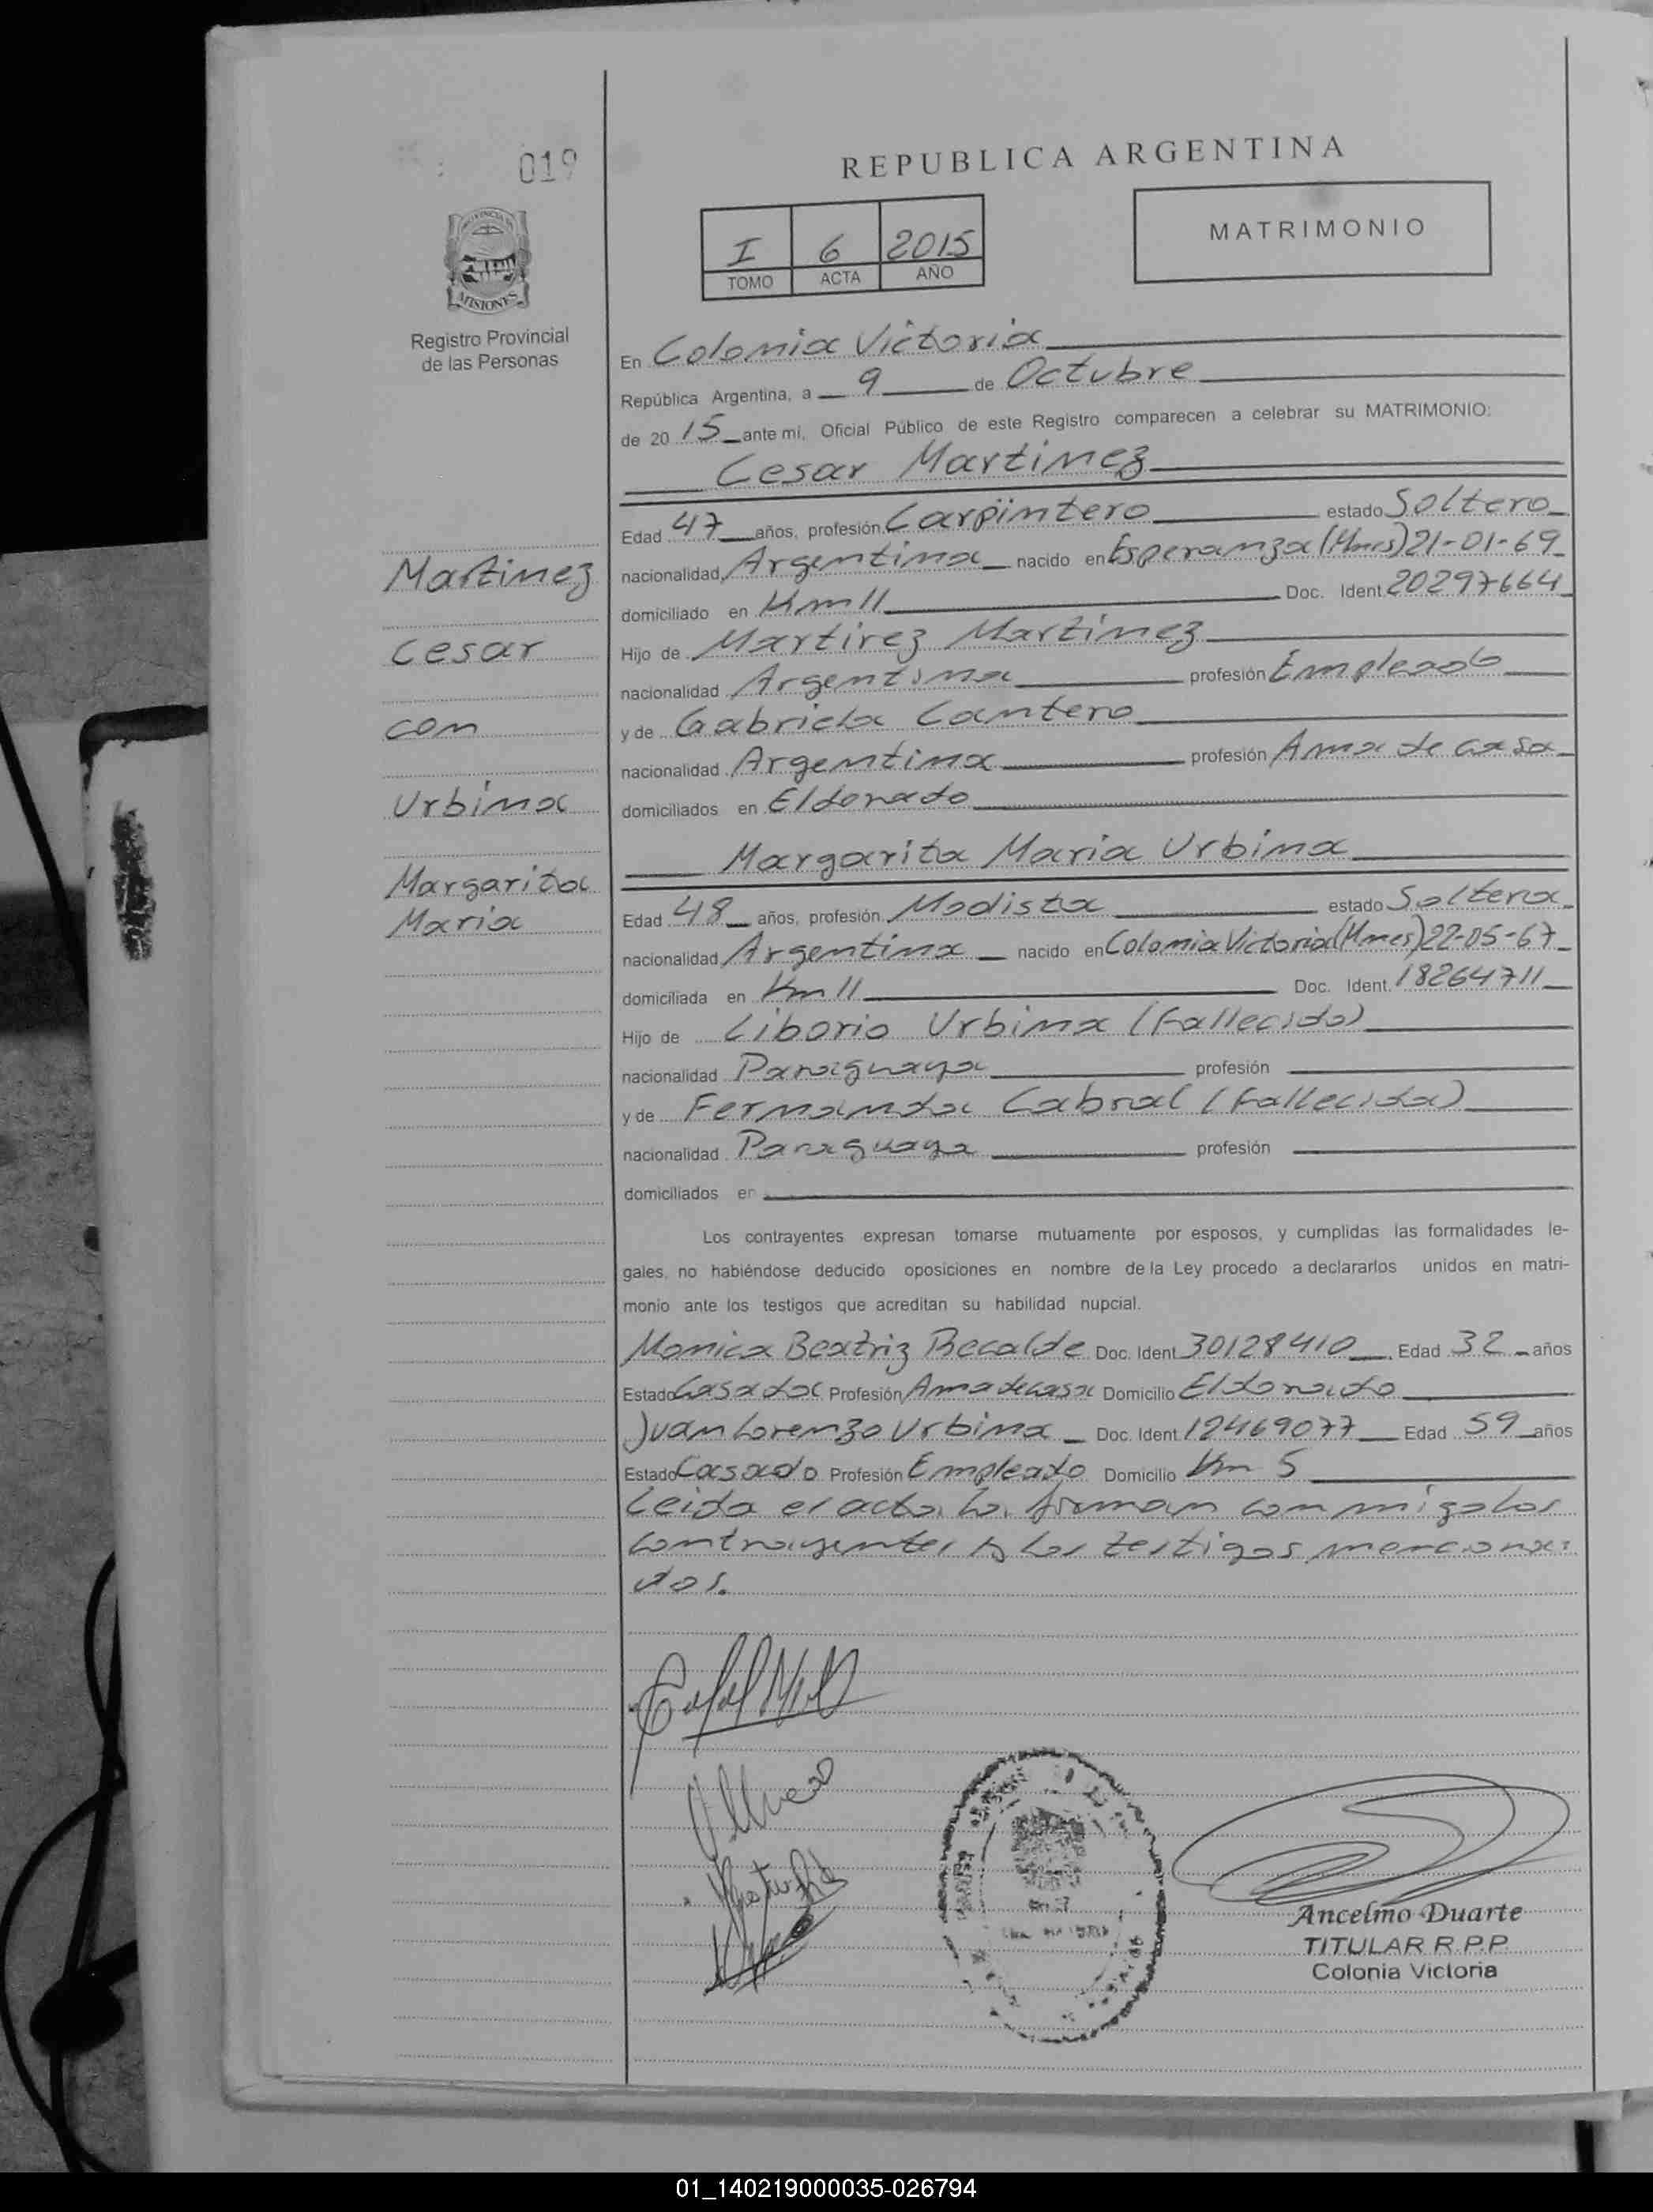 019
REPUBLICA ARGENTINA
MATRIMONIO
I 6 2015
TOMO ACTA AÑO
PROVINCIA DE
MISIONES
Registro Provincial
de las Personas
En Colonia Victoria
República Argentina, a 9 de Octubre
de 20 15 ante mi, Oficial Público de este Registro comparecen a celebrar su MATRIMONIO:
Cesar Martinez
Edad 47 años, profesión Carpintero estado Soltero
nacionalidad Argentina nacido en Esperanza (Mnes) 21-01-69
domiciliado en Km 11 Doc. Ident. 20297664
Hijo de Martirez Martinez
nacionalidad Argentina profesión Empleado
y de Gabriela Cantero
nacionalidad Argentina profesión Ama de casa
domiciliados en Eldorado
Margarita Maria Urbina
Edad 48 años, profesión Modista estado Soltera
nacionalidad Argentina nacido en Colonia Victoria (Mnes) 22-05-67
domiciliada en Km 11 Doc. Ident. 18264711
Hijo de Liborio Urbina (Fallecido)
nacionalidad Paraguaya profesión
y de Fernanda Cabral (Fallecida)
nacionalidad Paraguaya profesión
domiciliados en
Los contrayentes expresan tomarse mutuamente por esposos, y cumplidas las formalidades le-
gales, no habiéndose deducido oposiciones en nombre de la Ley procedo a declararlos unidos en matri-
monio ante los testigos que acreditan su habilidad nupcial.
Monica Beatriz Recalde Doc. Ident 30128410 Edad 32 años
Estado Casada Profesión Ama de casa Domicilio Eldorado
Juan Lorenzo Urbina Doc. Ident. 12469077 Edad 59 años
Estado Casado Profesión Empleado Domicilio Km 5
Leida el acta, la firman conmigo los
contrayentes y los testigos menciona-
dos.
Martinez
Cesar
con
Urbina
Margarita
Maria
Ancelmo Duarte
TITULAR R.P.P
Colonia Victoria
01_140219000035-026794